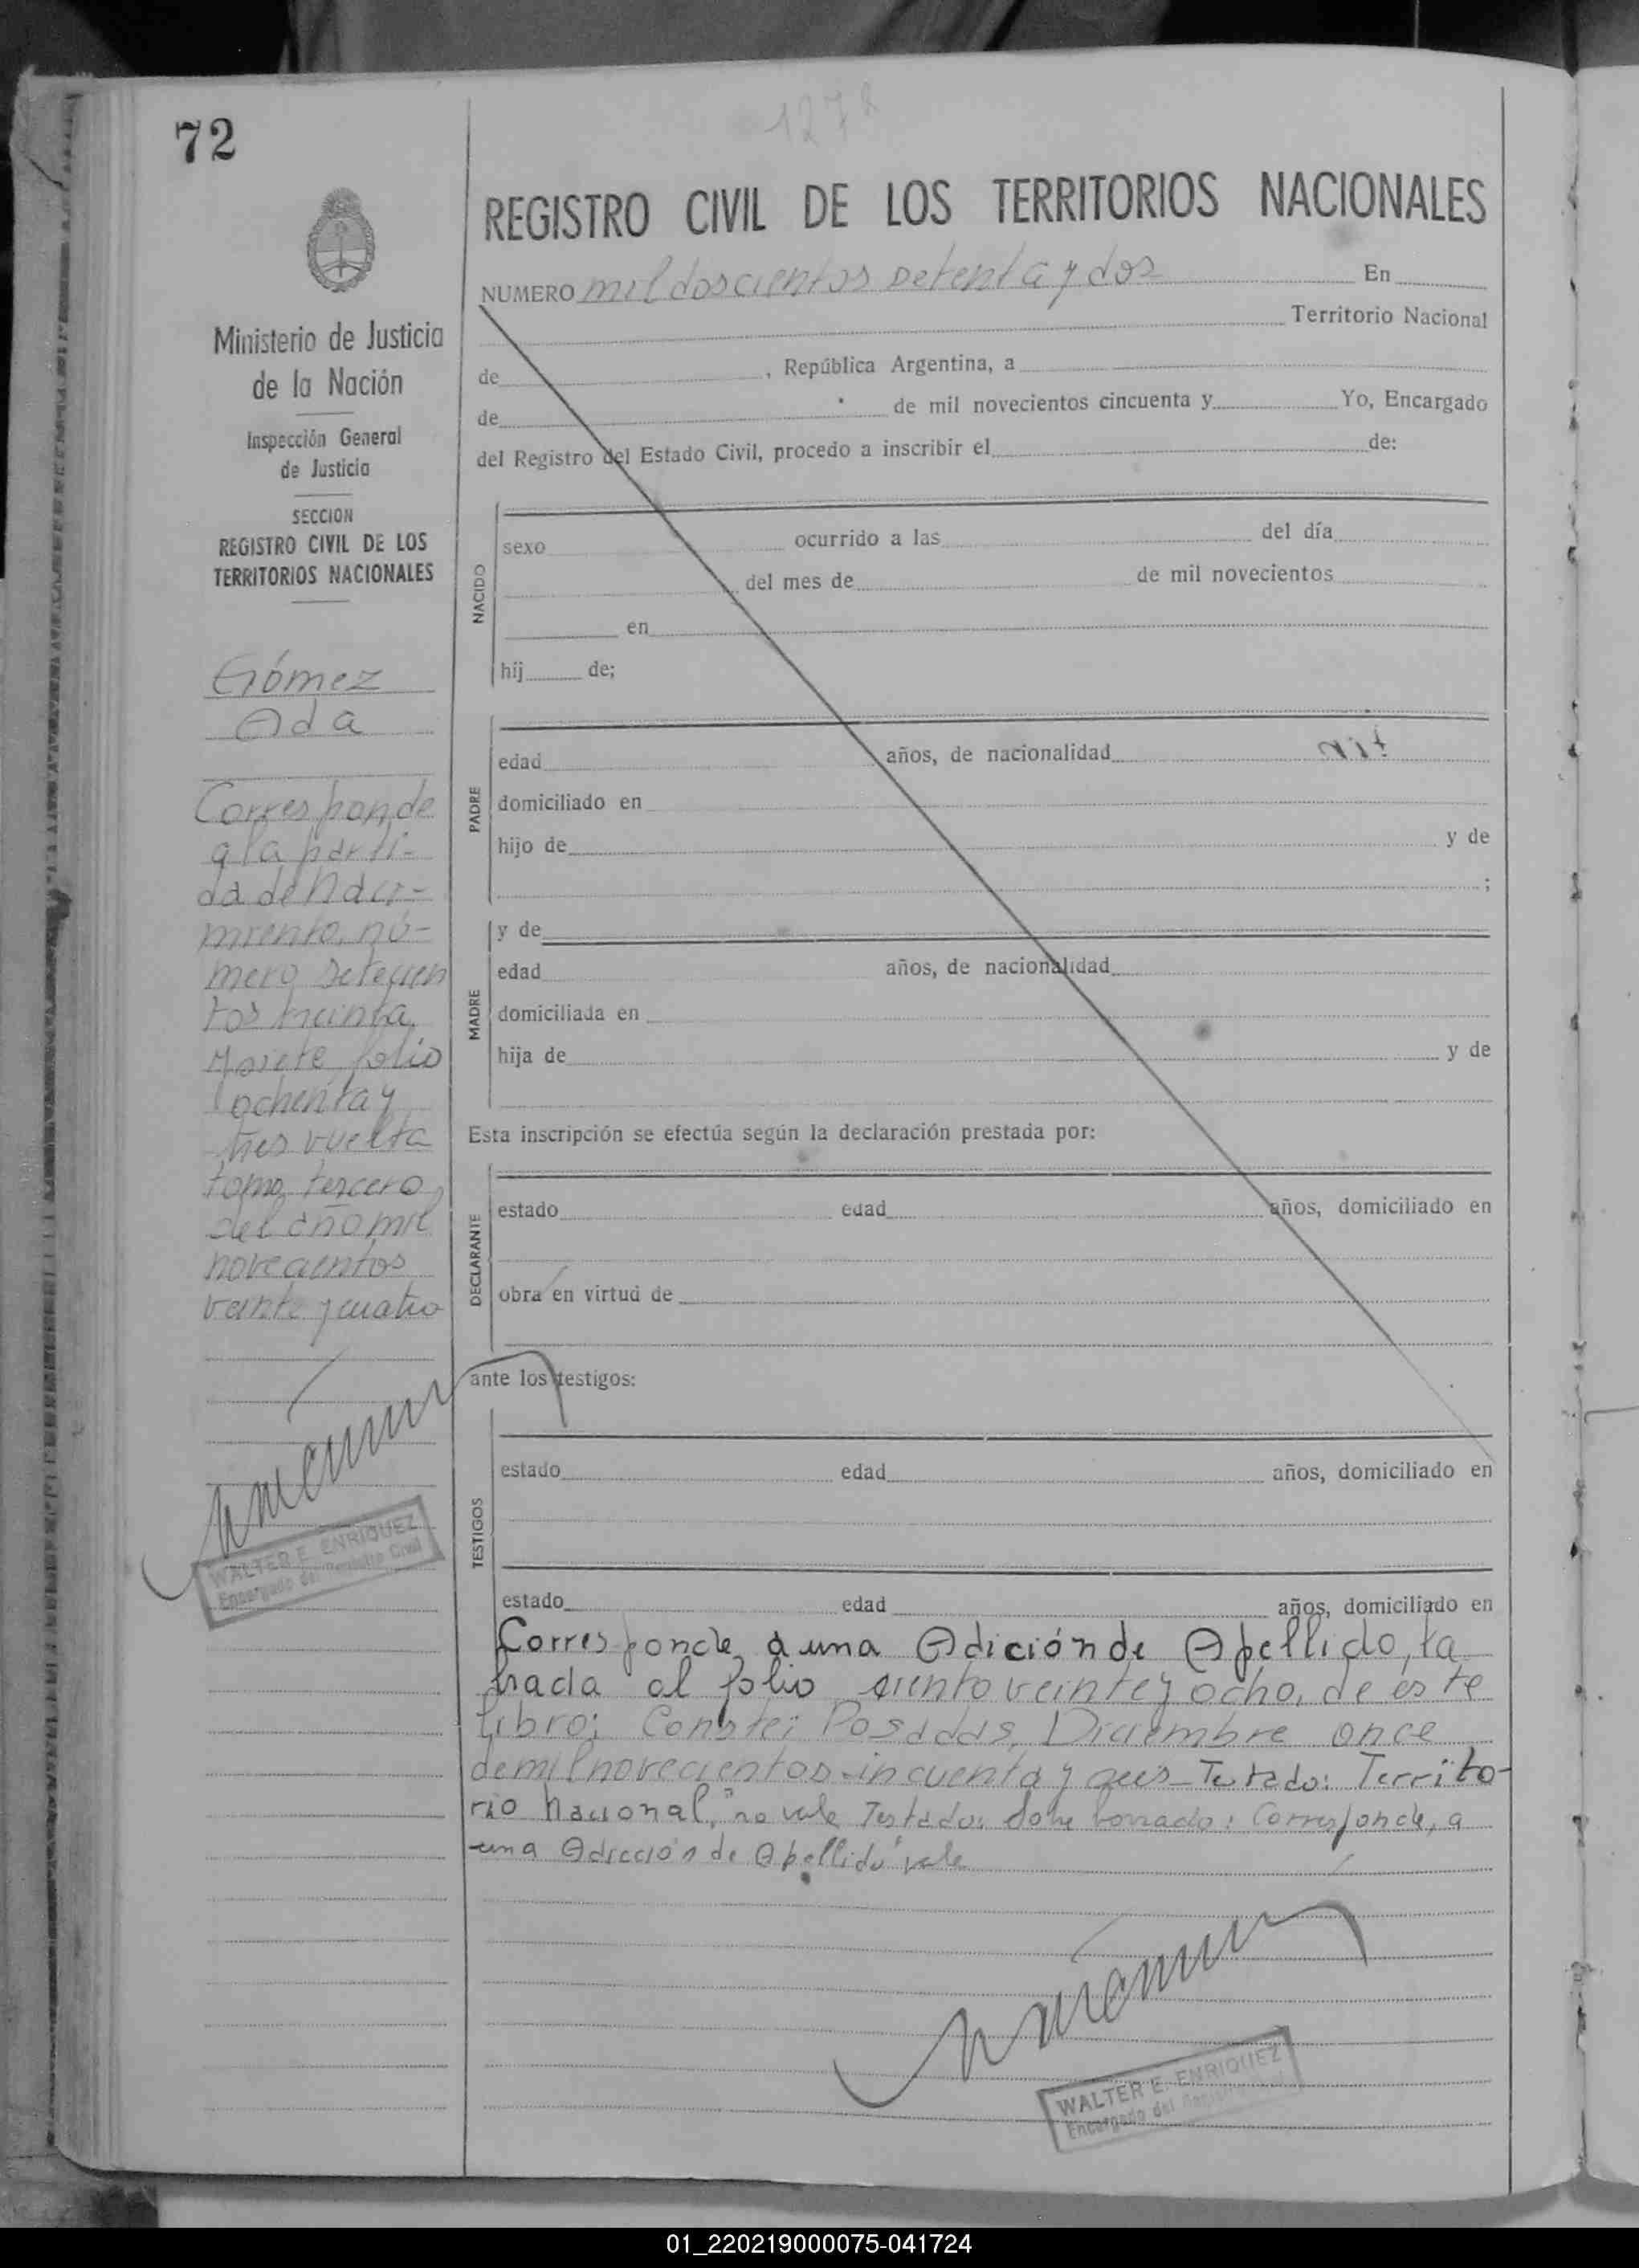 72
1272
REGISTRO CIVIL DE LOS TERRITORIOS NACIONALES
NUMERO mil doscientos setenta y dos En
Territorio Nacional
de , República Argentina, a
de de mil novecientos cincuenta y Yo, Encargado
del Registro del Estado Civil, procedo a inscribir el de:
Ministerio de Justicia
de la Nación
Inspección General
de Justicia
SECCION
REGISTRO CIVIL DE LOS
TERRITORIOS NACIONALES
Gómez
Ada
Corresponde
a la parti-
da de Naci-
miento, nú-
mero setecien
tos treinta
y siete folio
ochenta y
tres vuelta
tomo tercero,
del año mil
novecientos
veinte y cuatro
WALTER E. ENRIQUEZ
Encargado del Registro Civil
NACIDO
sexo ocurrido a las del día
del mes de de mil novecientos
en
hij de;
PADRE
edad años, de nacionalidad
domiciliado en
hijo de y de
;
MADRE
y de
edad años, de nacionalidad
domiciliada en
hija de y de
Esta inscripción se efectúa según la declaración prestada por:
DECLARANTE
estado edad años, domiciliado en
obra en virtud de
ante los testigos:
TESTIGOS
estado edad años, domiciliado en
estado edad años, domiciliado en
Corresponde, a una Adición de Apellido, la
brada al folio ciento veinte y ocho, de este
libro; Conste; Posadas, Diciembre once
de mil novecientos cincuenta y seis - Testado: Territo-
rio Nacional, "no vale Testado: sobre borrado: Corresponde, a
una Adicción de Apellido" vale
WALTER E. ENRIQUEZ
Encargado del Registro Civil
01_220219000075-041724